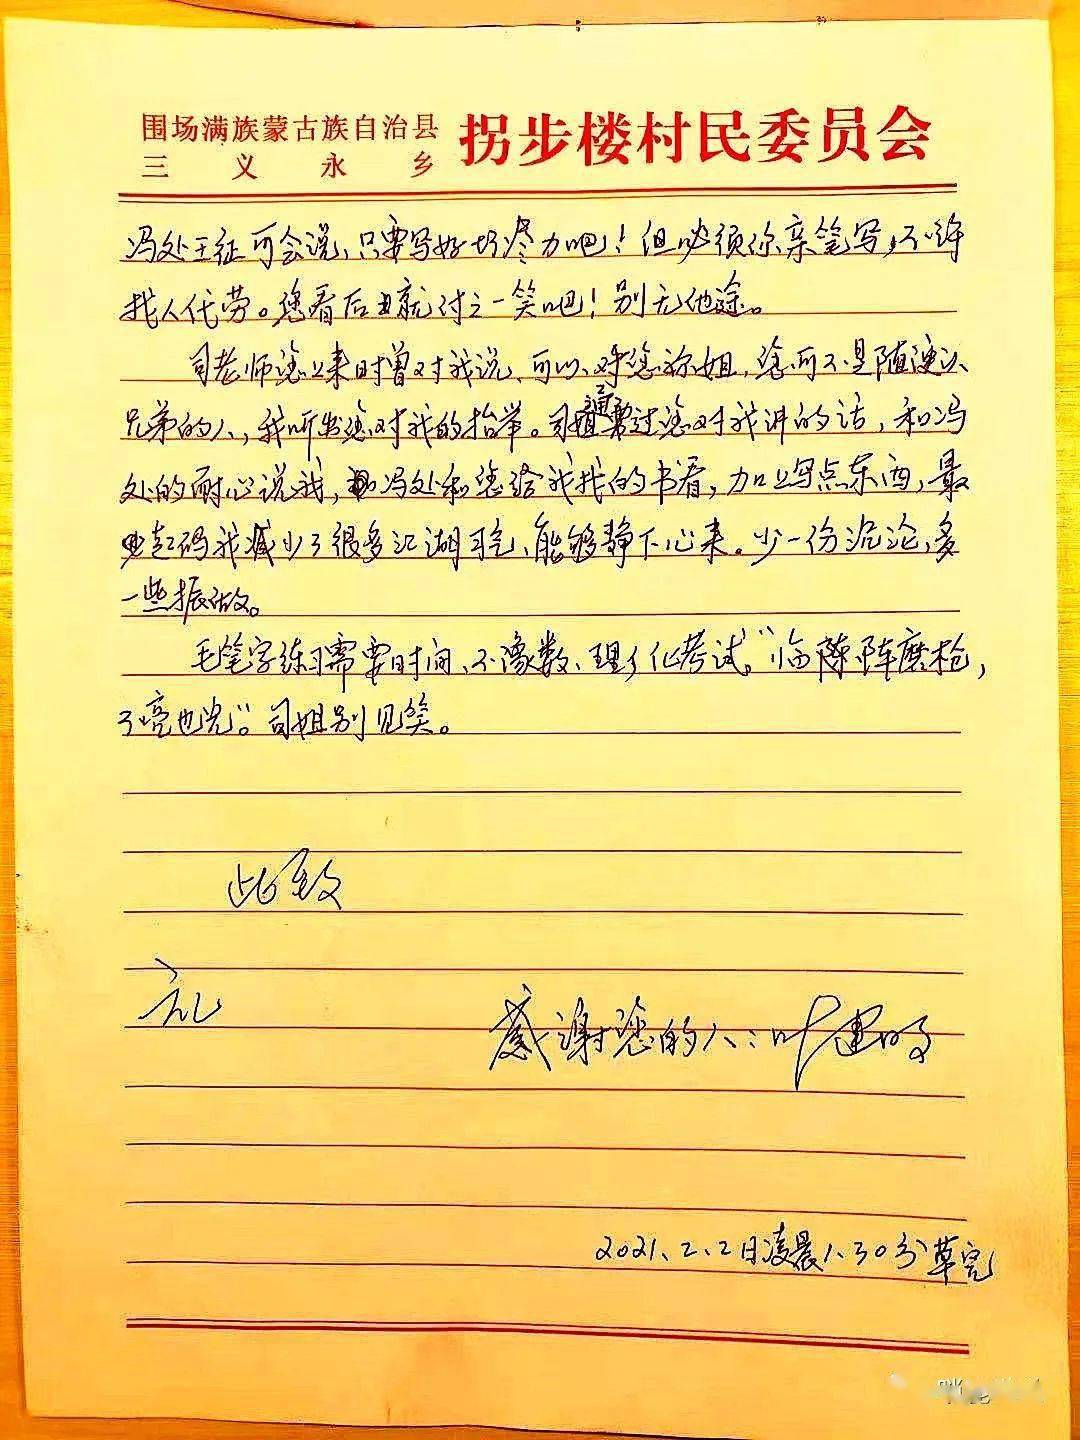 围场满族蒙古族自治县
三义永乡
拐步楼村民委员会
冯处王征可会说、只要写好坊尽力吧！但必须你亲笔写，不许
找人代劳。您看后就付之一笑吧！别无他途。
司老师您上来时曾对我说、可以对您称姐，您可不是随便认
兄弟的人，我听出您对我的抬举。司姐通过您对我讲的话，和冯
处的耐心说我，冯处和您给我找的书看，加上写点东西，最
起码我减少了很多江湖习气、能够静下心来。少一份沉沦，多
一些振做。
毛笔字练习需要时间、不像数、理、化考试。“临阵磨枪，
不亮也光”。司姐别见笑。
此致
礼
感谢您的人：叶建明
2021、2、2日凌晨1、30分草完